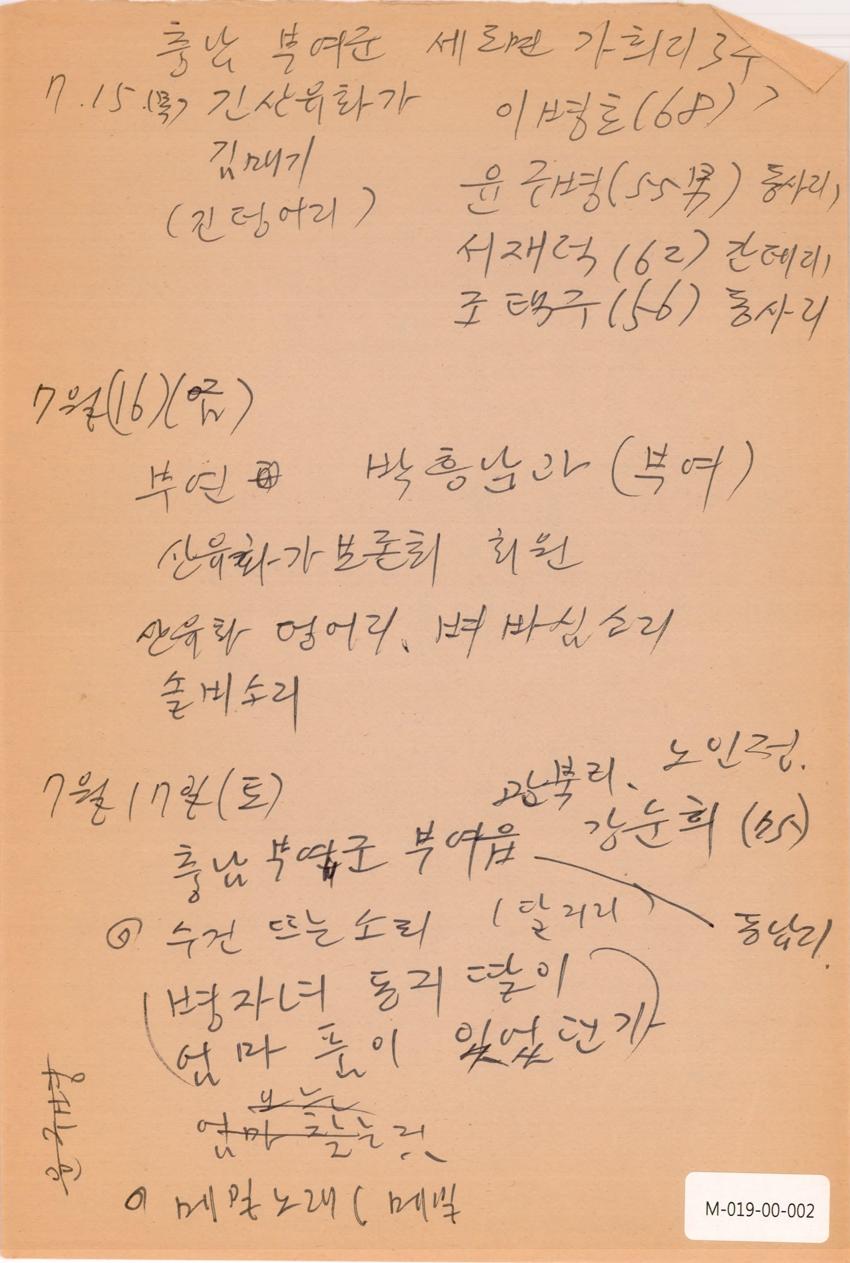 충남 부여군 세도면 가회리 3구
7.15.(목) 긴산유화가 이병호(68)
김매기
(진덩어리) 윤규병(55男) 동사리,
서재덕(62) 간대리,
조택구(56) 동사리
7월(16)(금)
부연 박흥남과 (부여)
산유화가보존회 회원
산유화 덩어리, 벼바심소리
솔비소리
7월 17일(토) 관북리, 노인정.
충남 부여군 부여읍 강순희 (75)
수건 뜨는소리 (달거리) 동남리.
병자년 둘러 딸이
엄마 품이 있었던가
엄마 찾는
메밀노래 (메밀
M-019-00-002